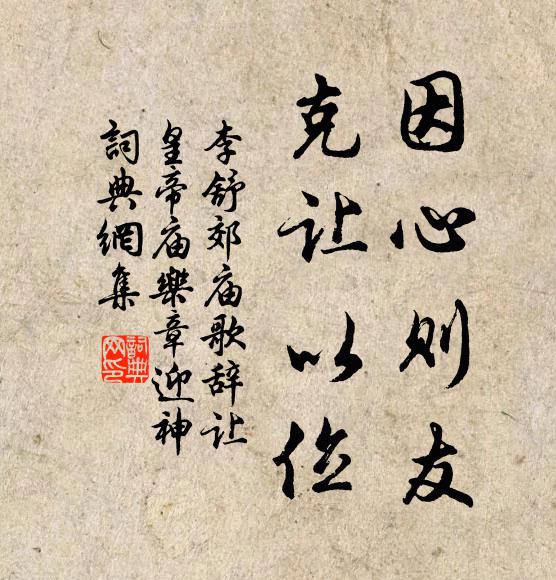 因心则友
克让以俭
李舒郊庙歌辞让
皇帝庙樂章迎神
詞典網集
詞典网印